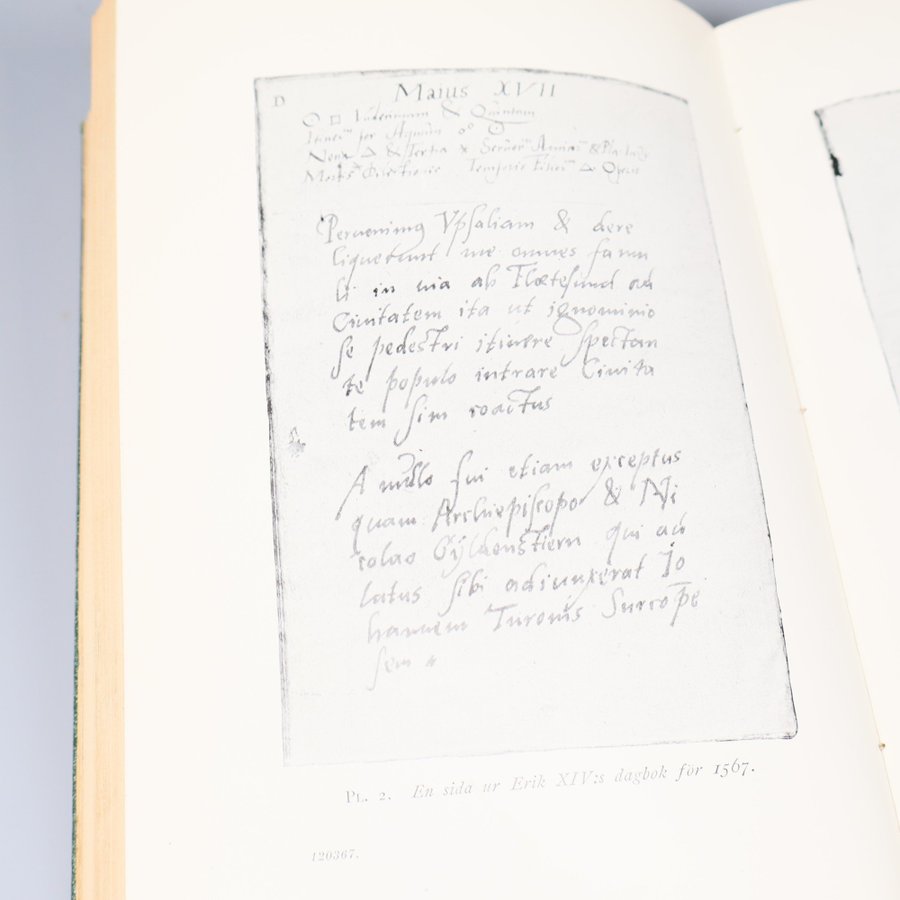 D
Maius XVII
O □ Vadentium & Quintum
for Aquim
& Tertia
Peruenimq Vpsaliam & dere
liquerunt me omnes famu
li in uia ab Flœtesund ad
Ciuitatem ita ut ignominio
se pedestri itinere spectan
te populo intrare Ciuita
tem sim coactus
A nullo fui etiam exceptus
quam Archiepiscopo & Ni
colao Gÿldenstiern qui ad
latus sibi adiunxerat Io
hannem Turonis Surcope
sem
PL. 2. En sida ur Erik XIV:s dagbok för 1567.
120367.